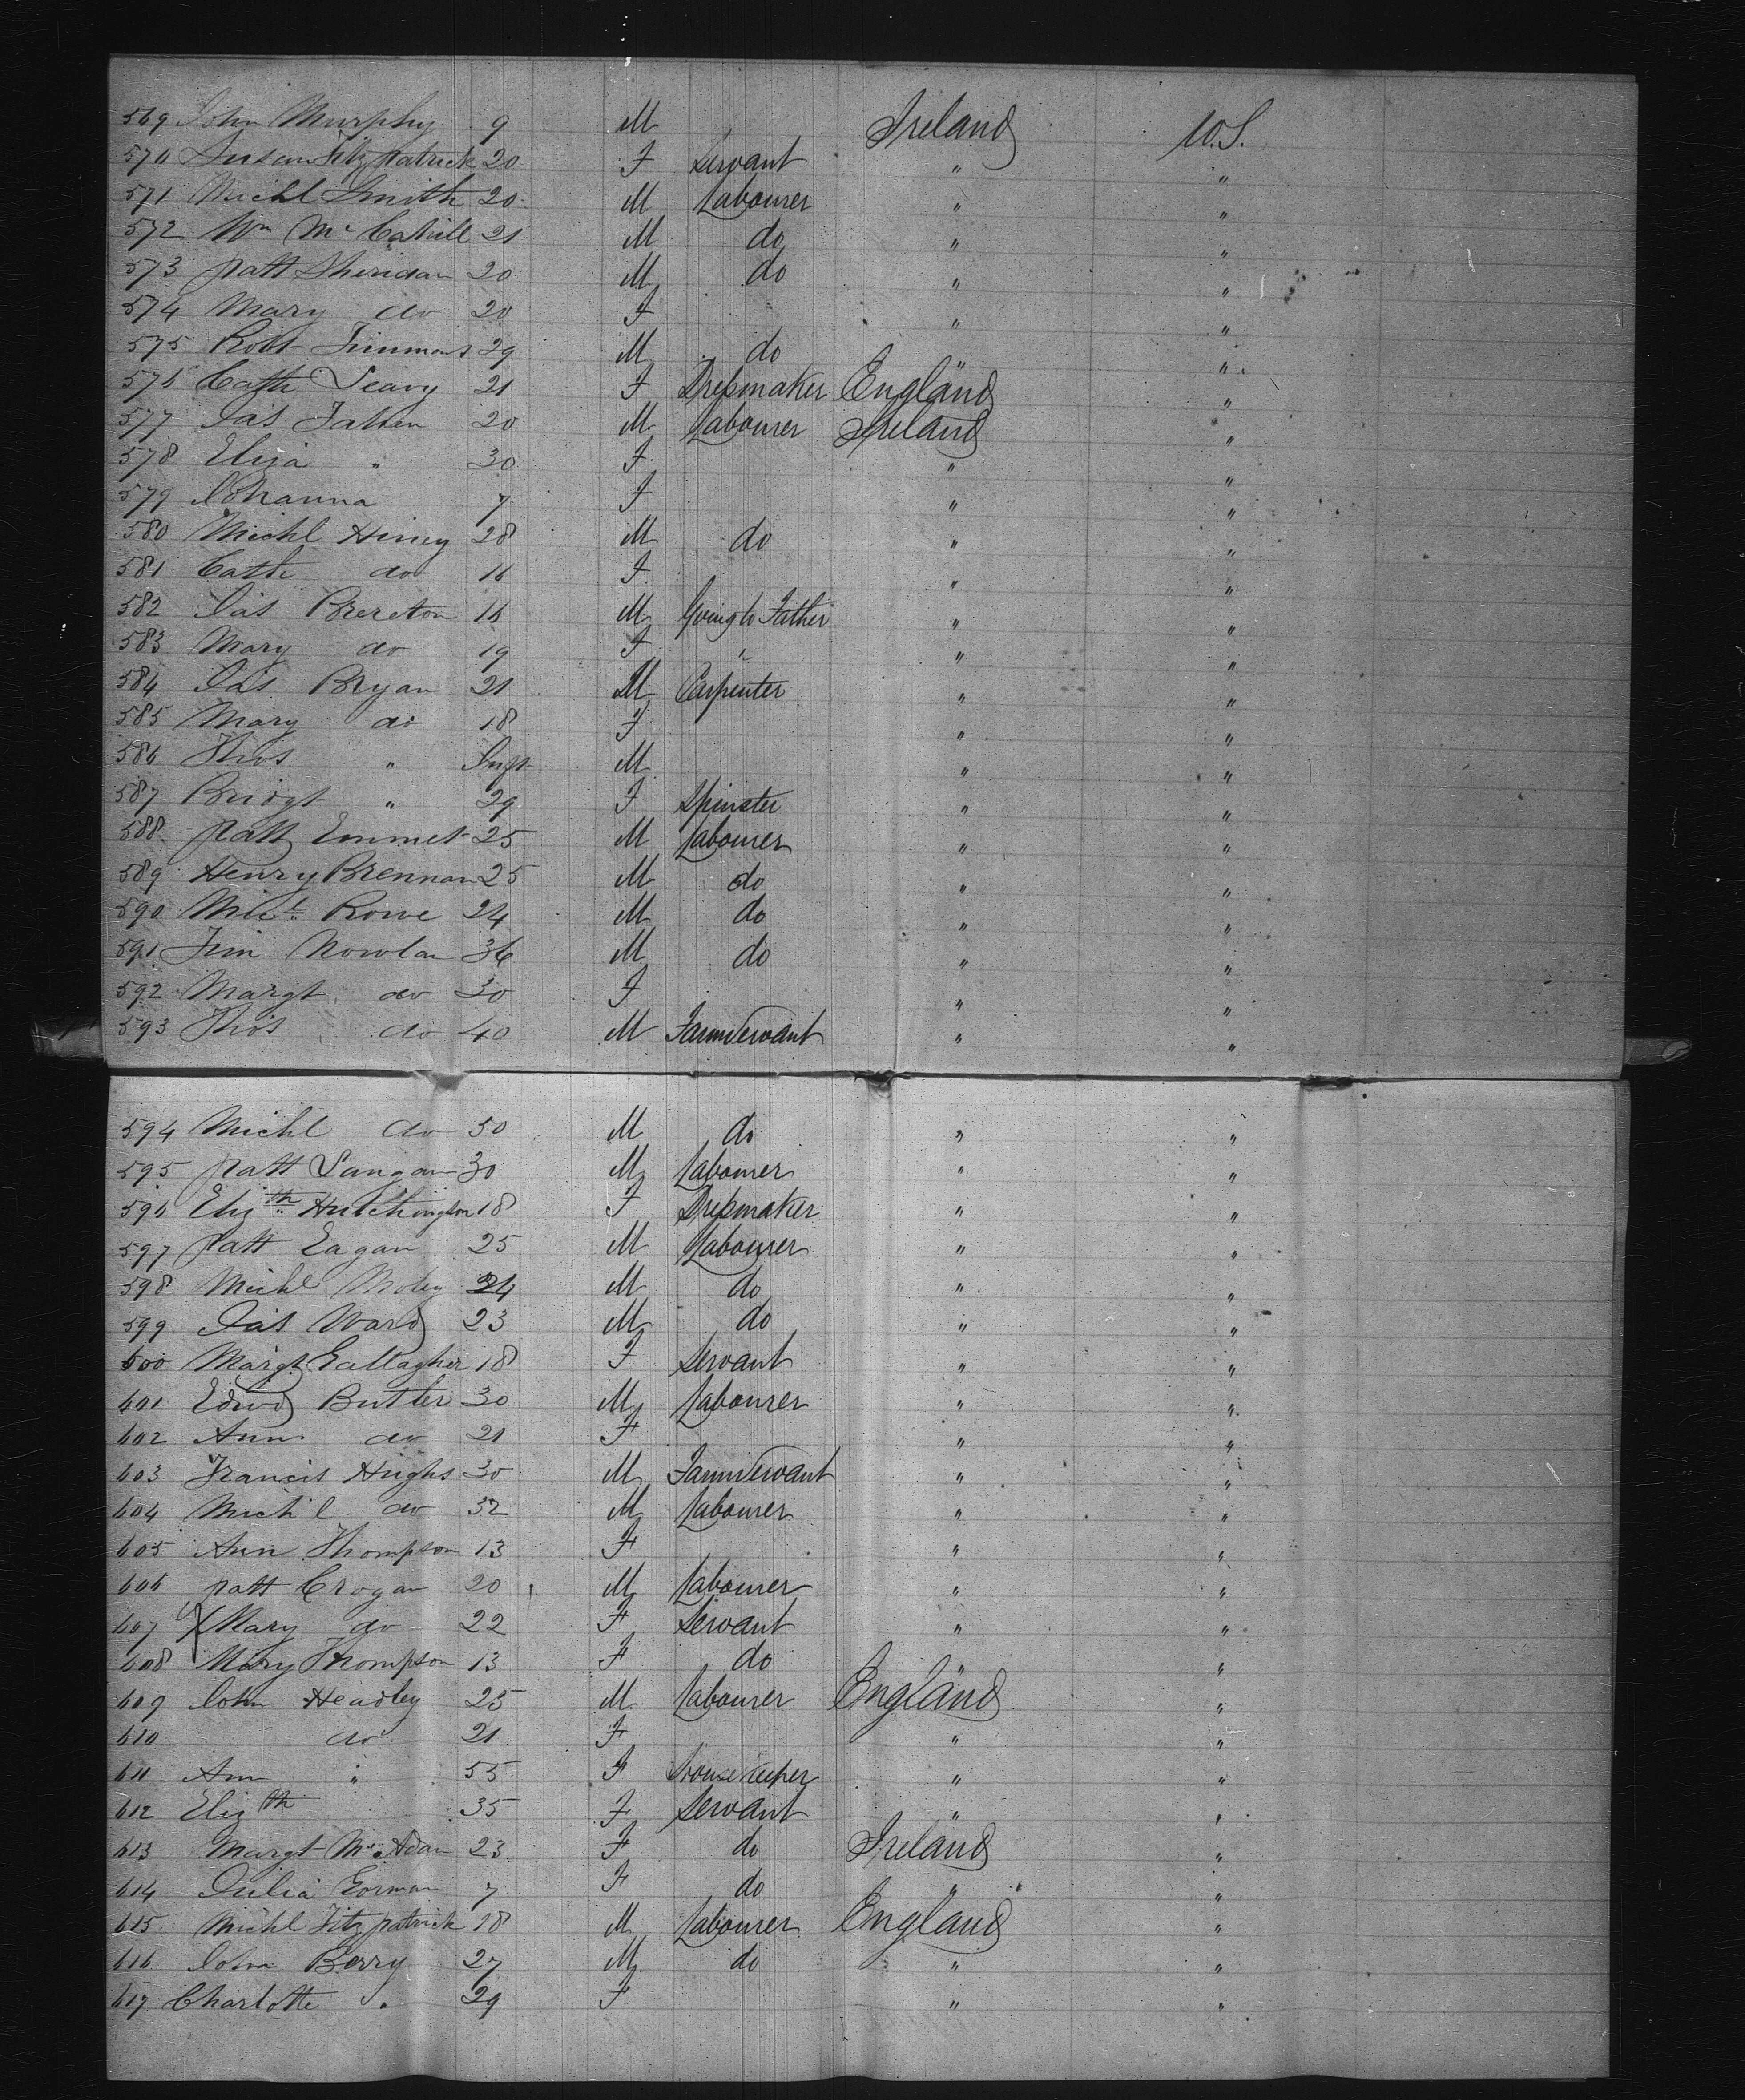 569 John Murphy 9 M Ireland U.S.
570 Susan Fitzpatrick 20 F Servant " "
571 Michl Smith 20 M Labourer " "
572 Wm McCahill 21 M do " "
573 Patt Sheridan 20 M do " "
574 Mary do 20 F " "
575 Robt Timmons 29 M do " "
576 Cath Leavy 21 F Dressmaker England "
577 Jas 20 M Labourer Ireland "
578 Eliza " 30 F " "
579 Johanna 7 F " "
580 Michl 28 M do " "
581 Cath do 16 F " "
582 Jas Brereton 16 M Going to Father " "
583 Mary do 19 F " " "
584 Jas Bryan 21 M Carpenter " "
585 Mary do 18 F " "
586 Thos " Inft M " "
587 Bridgt " 29 F Spinster " "
588 Patt Emmet 25 M Labourer " "
589 Henry Brennan 25 M do " "
590 Rowe 24 M do " "
591 Jim Nowlan 36 M do " "
592 Margt do 30 F " "
593 Thos do 40 M Farm Servant " "
594 Michl do 50 M do " "
595 Patt Langan 30 M Labourer " "
596 Elizth Hutchington 18 F Dressmaker " "
597 Patt Eagan 25 M Labourer " "
598 Michl 24 M do " "
599 Jas Ward 23 M do " "
600 Margt Gallagher 18 F Servant " "
601 Edwd Butler 30 M Labourer " "
602 Ann do 21 F " "
603 Francis Hughs 30 M Farm Servant " "
604 Mich'l do 32 M Labourer " "
605 Ann Thompson 13 F " "
606 Patt Crogan 20 M Labourer " "
607 X Mary do 22 F Servant " "
608 Mary Thompson 13 F do " "
609 John Headley 25 M Labourer England "
610 do 21 F " "
611 Ann " 55 F Housekeeper " "
612 Elizth 35 F Servant " "
613 Margt McAdam 23 F do Ireland "
614 Julia Gorman 7 F do " "
615 Michl Fitzpatrick 18 M Labourer England "
616 John Berry 27 M do " "
617 Charlotte " 29 F " "